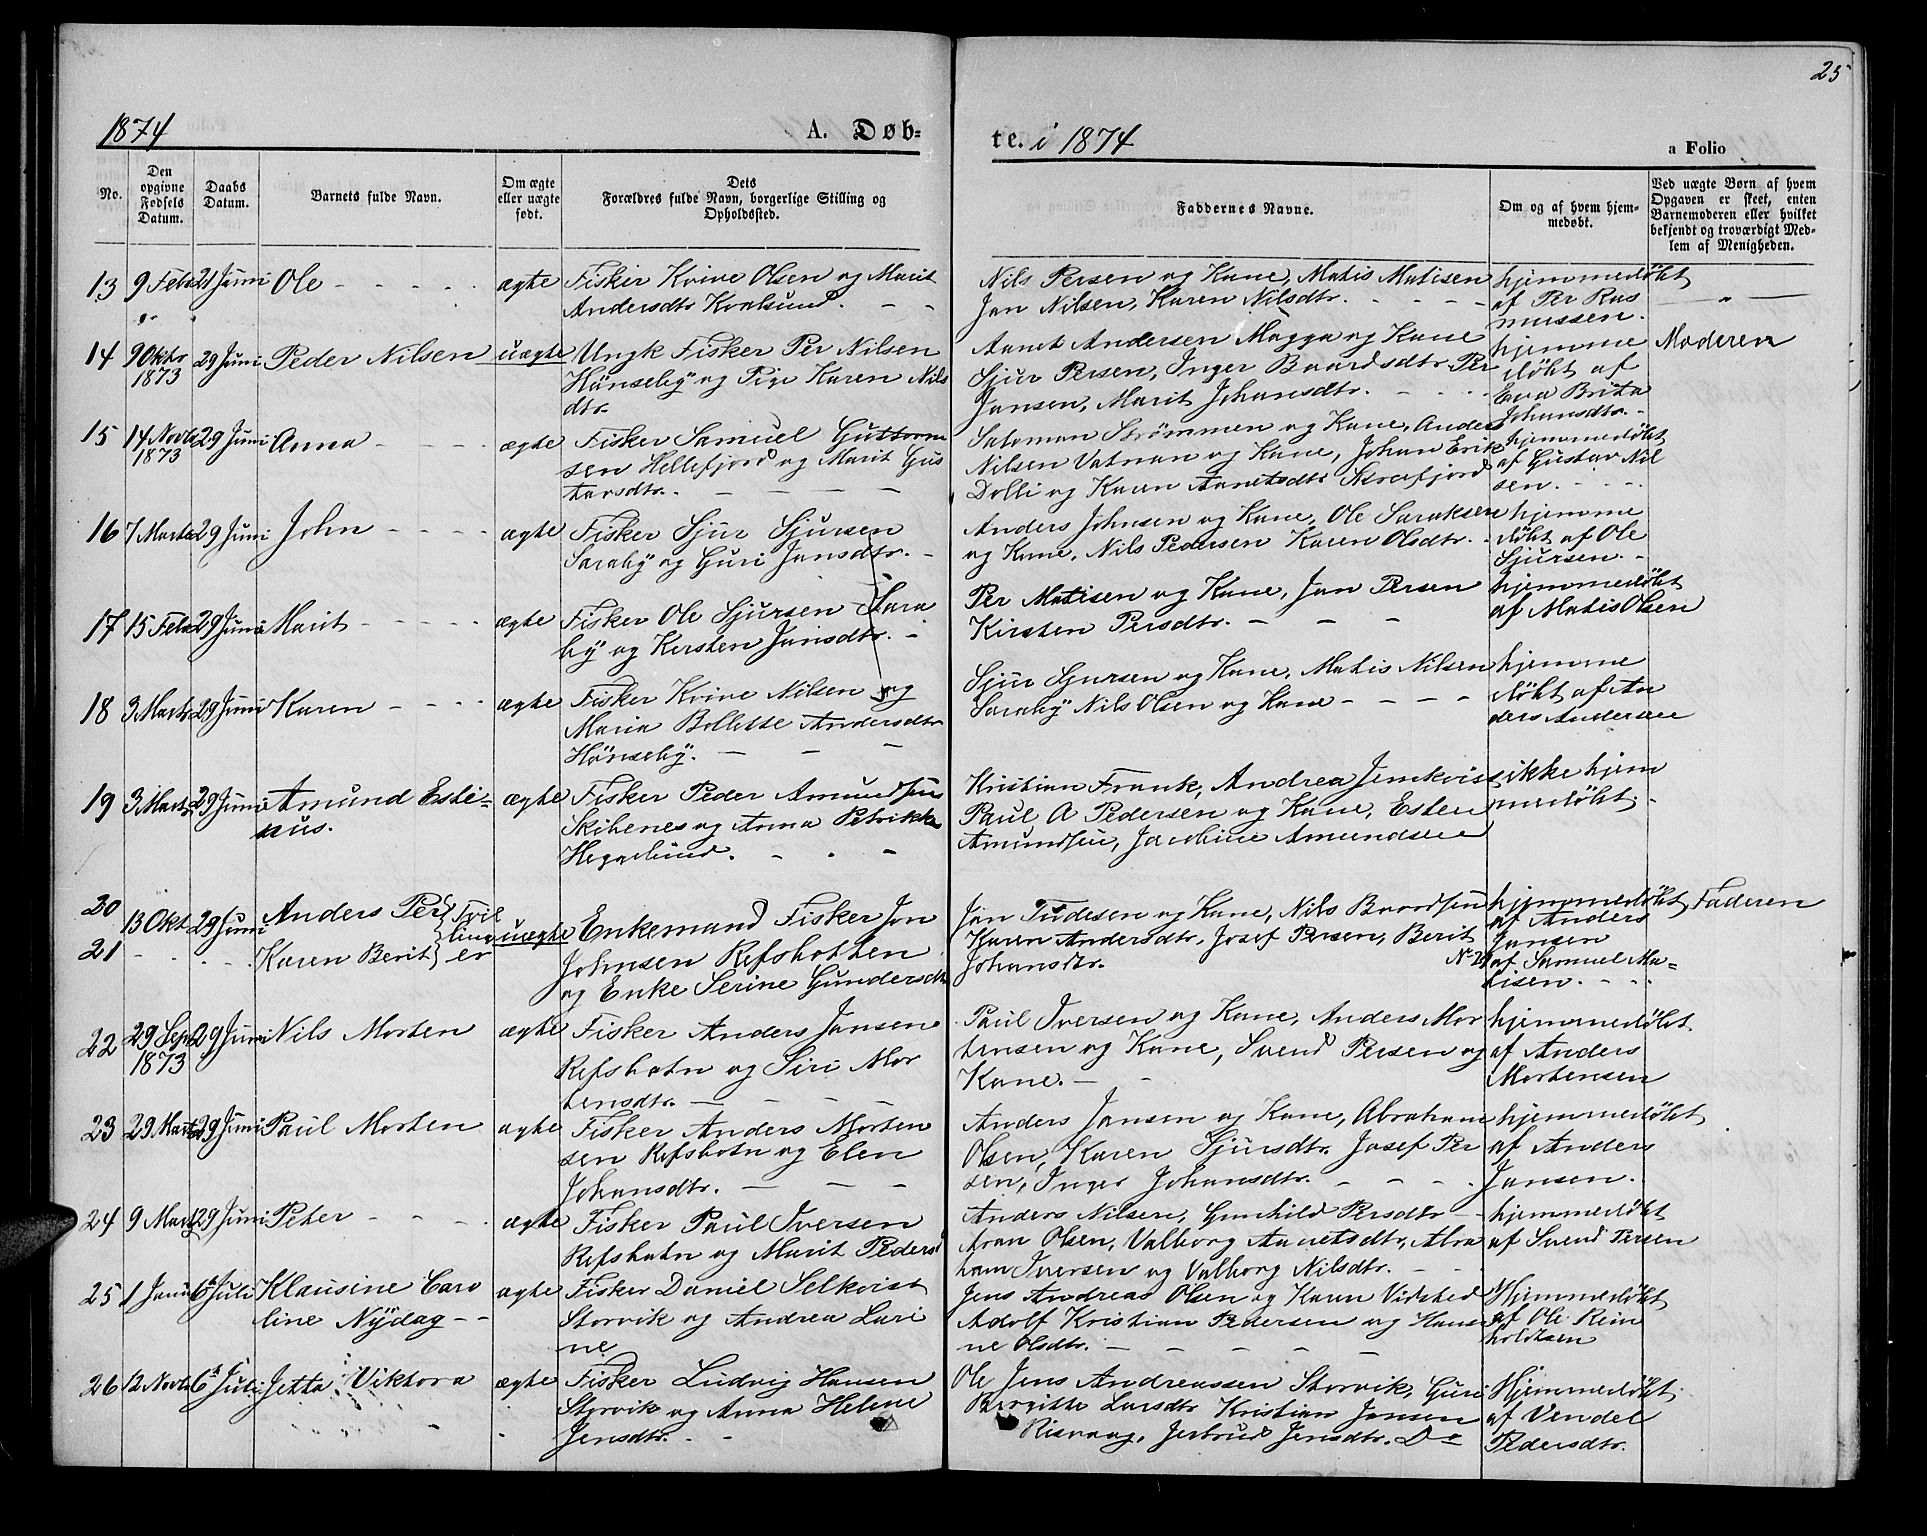 25
1874
A. Døb-
te. i 1874
a Folio
No.
Den opgivne Fødsels Datum.
Daabs Datum.
Barnets fulde Navn.
Om ægte eller uægte født.
Dets Forældres fulde Navn, borgerlige Stilling og Opholdssted.
Faddernes Navne.
Om og af hvem hjem-medøbt.
Ved uægte Børn af hvem Opgaven er skeet, enten Barnemoderen eller hvilket bekjendt og troværdigt Med-lem af Menigheden.
13 9 Feb 21 Juni Ole - - - - ægte Fisker Kvive Olsen og Marit
Andersdtr Kvalsund. - -
Nils Persen og Kone, Matis Matisen
Jon Nilsen, Karen Nilsdtr. - - - -
hjemmedöbt
af Per Ras
mussen.
— " —
14 9 Oktr 1873 29 Juni Peder Nilsen uægte Ungk Fisker Per Nilsen
Hönseby og Pige Karen Nils
dtr.
Aanet Andersen Magga og Kone
Sjur Persen, Inger Baardsdtr Per
Jansen, Marit Johansdtr. - - - -
hjemme
döbt af
Eva Brita
Johansdtr. -
Moderen
15 14 Novbr 1873 29 Juni Anna - - - - ægte Fisker Samuel Guttorm
sen Hellefjord og Marit Gus
tavsdtr. - - - -
Salomon Strömmen og Kone, Anders
Nilsen Vatnan og Kone, Johan Erik
Dolli og Karen Aanetsdtr
hjemmedöbt
af Gustav Nil
sen. - - -
16 7 Marts 29 Juni John - - - - ægte Fisker Sjur Sjursen
Saraby og Guri Jansdtr. -
Anders Johnsen og Kone, Ole Saraksen
og Kone, Nils Pedersen Karen Olsdtr. -
hjemme
döbt af Ole
Sjursen. -
17 15 Feb 29 Juni Marit - - - - ægte Fisker Ole Sjursen Sara
by og Kersten Jansdtr. -
Per Matisen og Kone, Jan Persen
Kirsten Persdtr. - - -
hjemmedöbt
af Matis Olsen
18 3 Marts 29 Juni Karen - - - - ægte Fisker Kvive Nilsen og
Maria Bollette Andersdtr
Hönseby. - - -
Sjur Sjursen og Kone, Matis Nilsen
Saraby Nils Olsen og Kone - - - -
hjemme
döbt af An
ders Andersen
19 3 Marts 29 Juni Amund Esti-
nus.
ægte Fisker Peder Amundsen
Skibenes og Anna Petrikke
Heggelund. - - -
Kristian Frank, Andrea
Paul A Pedersen og Kone, Esten
Amundsen, Jacobine Amundsen
ikke hjem
medöbt.
20 13 Okt 29 Juni Anders Per
21 - - - - Karen Berit
Tvil
ling
er
uægte Enkemand Fisker Jon
Johnsen Refsbotten
og Enke Serine Gundersdtr
Jon Tudesen og Kone, Nils Baardsen
Karen Andersdtr, Josef Persen, Berit
Johansdtr.
hjemmedöbt
af Anders
Jansen
No 21 af Samuel Ma-
tisen. - - -
Faderen
22 29 Sep 1873 29 Juni Nils Morten ægte Fisker Anders Jansen
Refsbotn og Siri Mor
tensdtr. - - - -
Paul Iversen og Kone, Anders Mor
tensen og Kone, Svend Persen og
Kone. - -
hjemmedöbt
af Anders
Mortensen
23 29 Marts 29 Juni Paul Morten ægte Fisker Anders Morten
sen Refsbotn og Elen
Johansdtr. - - -
Anders Jansen og Kone, Abraham
Olsen, Karen Sjursdtr. Josef Per
sen, Inger Johansdtr. - - - -
hjemmedöbt
af Anders
Jansen.
24 9 Marts 29 Juni Peter - - - - ægte Fisker Paul Iversen
Refsbotn og Marit Pedersd
Anders Nilsen, Gunhild Persdtr -
Olsen, Valborg Aanetsdtr, Abra
ham Iversen og Valborg Nilsdtr. - -
hjemmedöbt
af Svend Persen
25 1 Janu 6 Juli Klausine Caro
line Nÿdag - -
ægte Fisker Daniel Selkvist
Storvik og Andrea Lari
ne
Jens Andreas Olsen og Karen Vidsted
Adolf Kristian Pedersen og Han
ne Olsdtr. - - - - -
Hjemmedöbt
af Ole Rein
holdtsen
26 12 Novbr 6 Juli Jetta Viktora ægte Fisker Ludvig Hansen
Storvik og Anna Helene
Jensdtr. - -
Ole Jens Andreassen Storvik, Guri
Birgitte Larsdtr Kristian Jansen
Risvaag, Jertrud Jensdtr. Do
Hjemmedöbt
af Vendel
Pedersdtr.